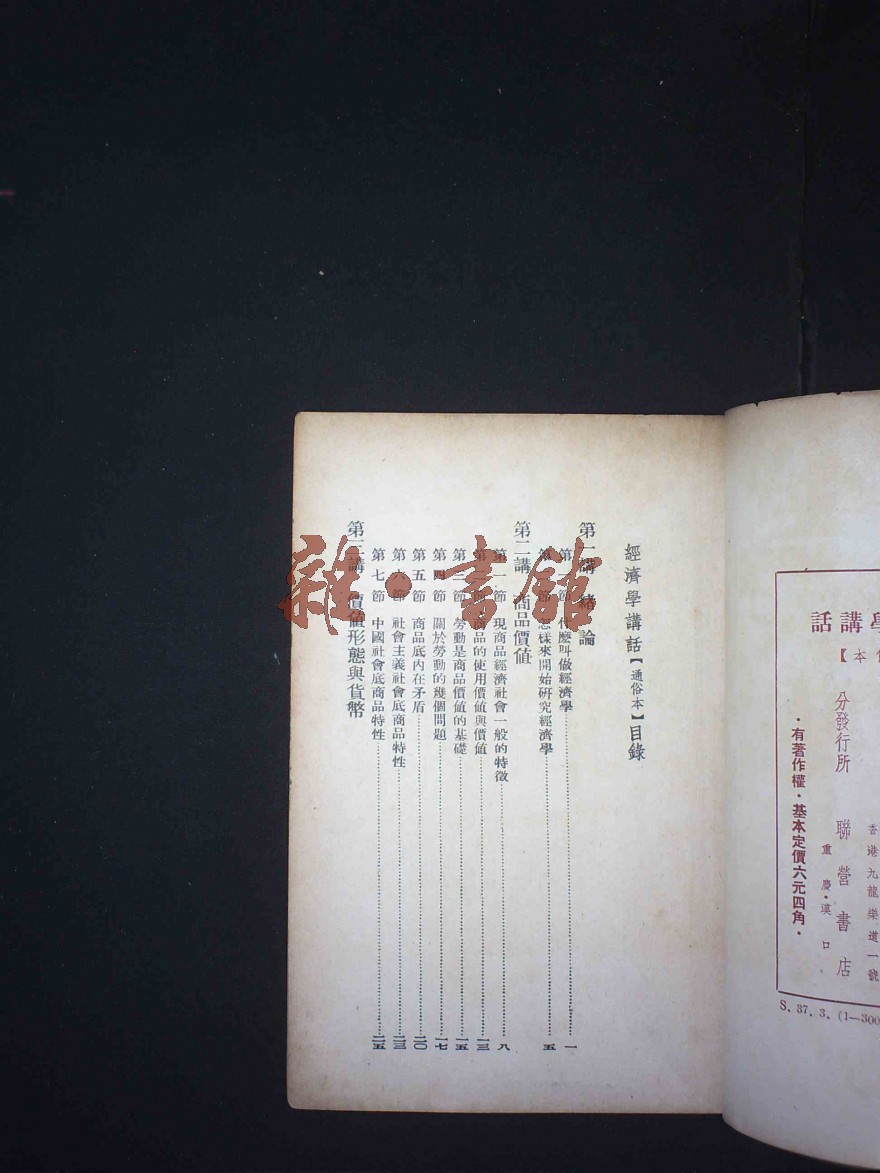 學講話
俗本】
分發行所 聯營書店
重慶·漢口
香港九龍樂道一號
·有著作權·基本定價六元四角·
S. 37. 3. (1—300
經濟學講話【通俗本】目錄
第一講 緒論
第一節 什麽叫做經濟學 一
第二節 怎樣來開始研究經濟學 五
第二講 商品價值
第一節 現商品經濟社會一般的特徵 八
第二節 商品的使用價値與價値 一三
第三節 勞動是商品價値的基礎 一五
第四節 關於勞動的幾個問題 一七
第五節 商品底內在矛盾 二〇
第六節 社會主義社會底商品特性 二三
第七節 中國社會底商品特性 二五
第三講 價值形態與貨幣
雜·書館